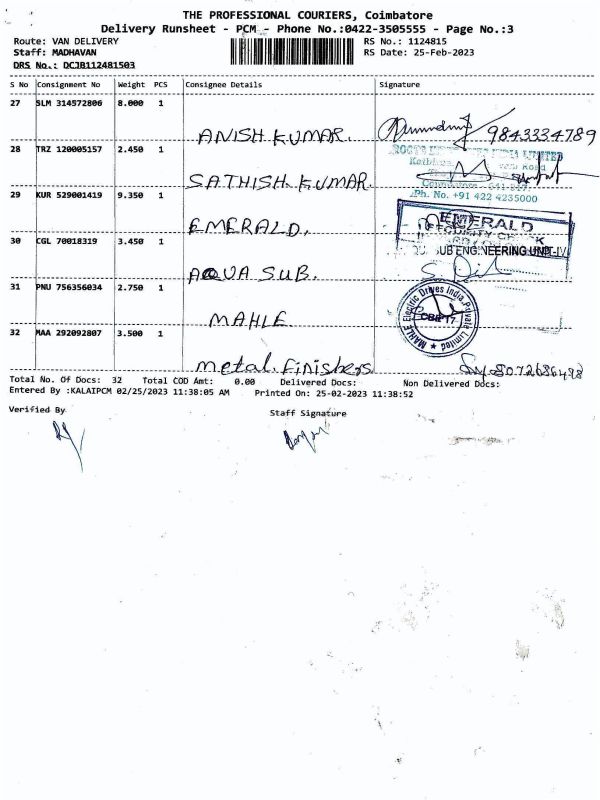 THE PROFESSIONAL COURIERS, Coimbatore
Delivery Runsheet - PCM - Phone No.:0422-3505555 - Page No.:3
Route: VAN DELIVERY RS No.: 1124815
Staff: MADHAVAN RS Date: 25-Feb-2023
DRS No.: DCJB112481503
S No Consignment No Weight PCS Consignee Details Signature
27 SLM 314572806 8.000 1
ANISH KUMAR. 9843334789
28 TRZ 120005157 2.450 1
SATHISH KUMAR.
Ph. No. +91 422 4235000
29 KUR 529001419 9.350 1
EMERALD. EMERALD
30 CGL 70018319 3.450 1
SUB ENGINEERING UNIT-IV
AQUA SUB.
31 PNU 756356034 2.750 1
MAHLE MAHLE Electric Drives India Private Limited
CBE 17
32 MAA 292092807 3.500 1
Metal. Finishers 8072686498
Total No. Of Docs: 32 Total COD Amt: 0.00 Delivered Docs: Non Delivered Docs:
Entered By :KALAIPCM 02/25/2023 11:38:05 AM Printed On: 25-02-2023 11:38:52
Verified By Staff Signature